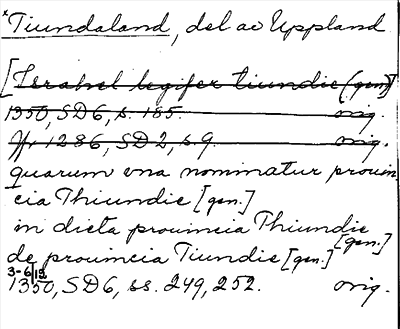 *Tiundaland, del av Uppland
[Israhel legifer tiundie (gen)]
1350, SD6, s. 185. orig.
1286, SD2, s. 9. orig.
quarum vna nominatur prouin
cia Thiundie [gen.]
in dicta prouincia Thiundie
[gen.]
de prouincia Tiundie [gen.]
3-6/12
1350, SD6, ss. 249, 252. orig.